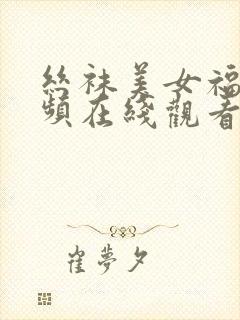 絲袜美女福
頻在綫觀看
崔夢夕